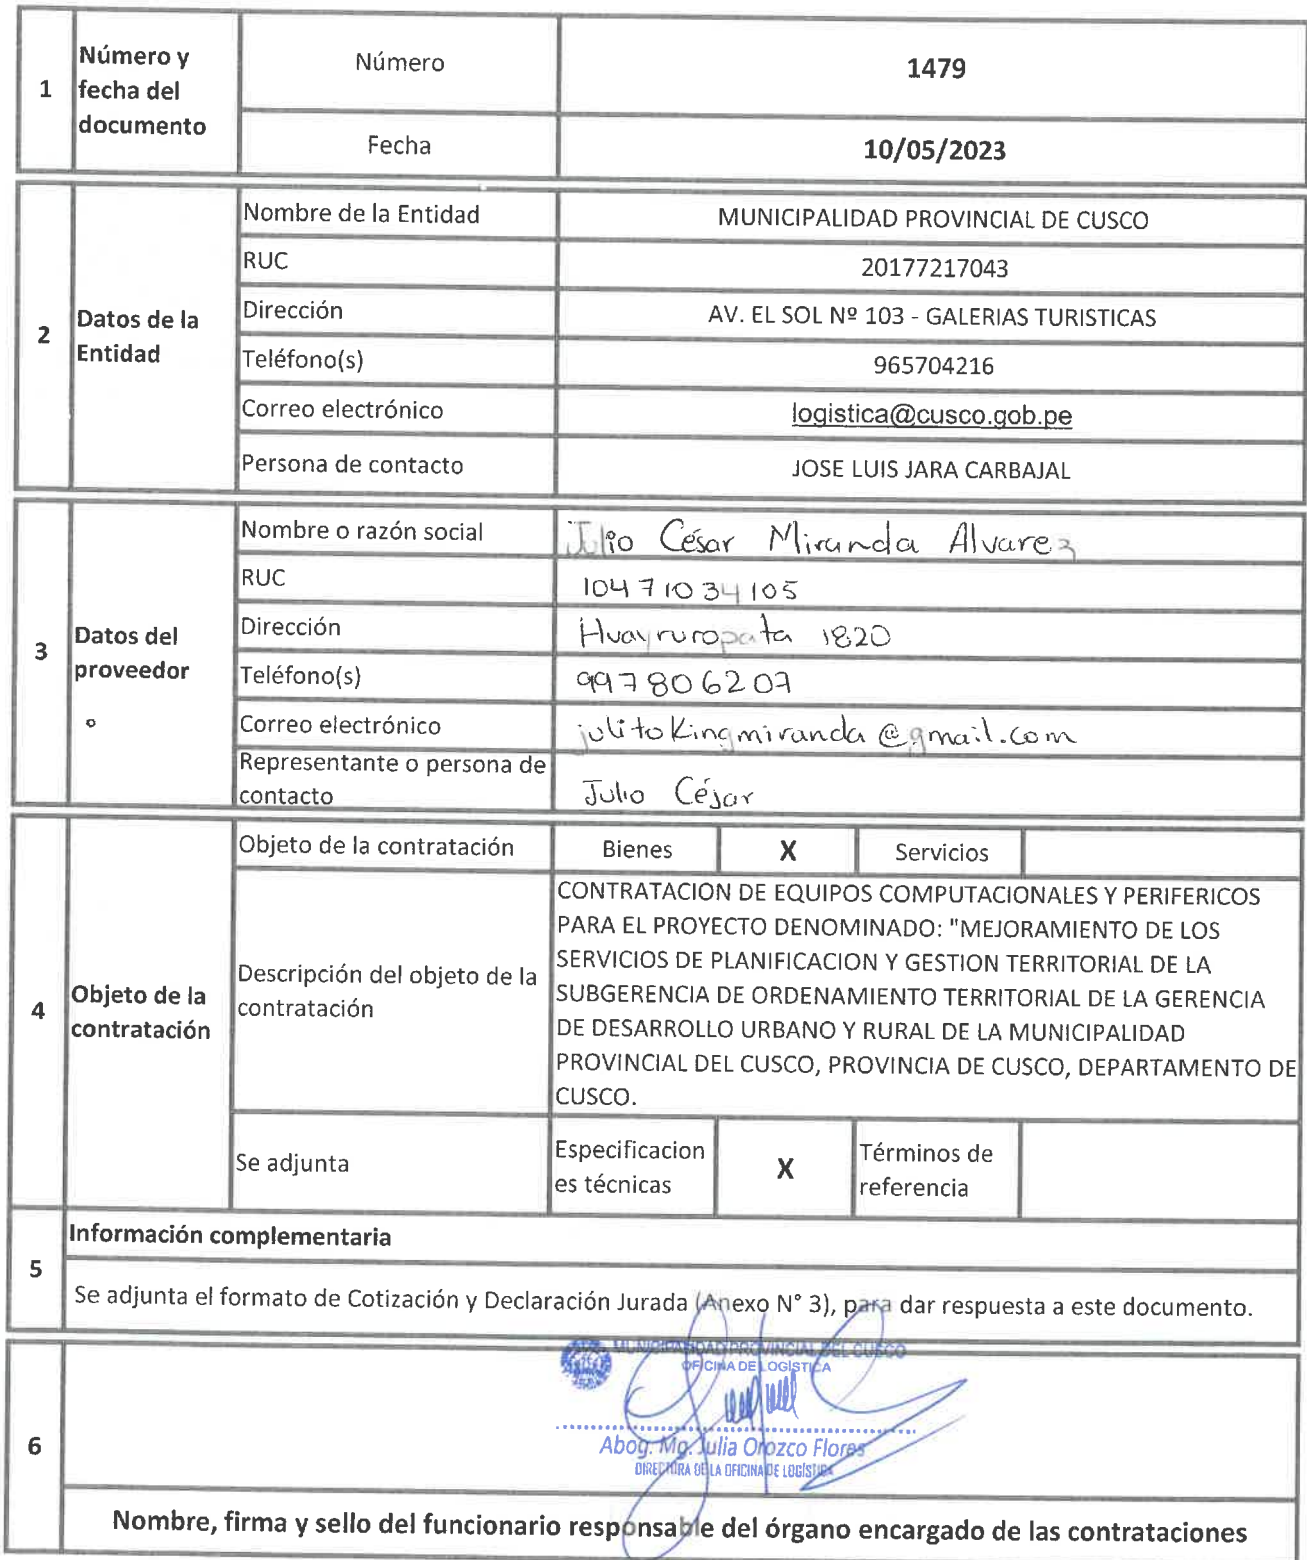 1
Número y
fecha del
documento
Número
1479
Fecha
10/05/2023
2
Datos de la
Entidad
Nombre de la Entidad
MUNICIPALIDAD PROVINCIAL DE CUSCO
RUC
20177217043
Dirección
AV. EL SOL Nº 103 - GALERIAS TURISTICAS
Teléfono(s)
965704216
Correo electrónico
logistica@cusco.gob.pe
Persona de contacto
JOSE LUIS JARA CARBAJAL
3
Datos del
proveedor
Nombre o razón social
Julio César Miranda Alvarez
RUC
10471034105
Dirección
Huayruropata 1820
Teléfono(s)
997806207
Correo electrónico
julitokingmiranda@gmail.com
Representante o persona de
contacto
Julio César
4
Objeto de la
contratación
Objeto de la contratación
Bienes X Servicios
Descripción del objeto de la
contratación
CONTRATACION DE EQUIPOS COMPUTACIONALES Y PERIFERICOS
PARA EL PROYECTO DENOMINADO: "MEJORAMIENTO DE LOS
SERVICIOS DE PLANIFICACION Y GESTION TERRITORIAL DE LA
SUBGERENCIA DE ORDENAMIENTO TERRITORIAL DE LA GERENCIA
DE DESARROLLO URBANO Y RURAL DE LA MUNICIPALIDAD
PROVINCIAL DEL CUSCO, PROVINCIA DE CUSCO, DEPARTAMENTO DE
CUSCO.
Se adjunta
Especificacion
es técnicas
X
Términos de
referencia
5
Información complementaria
Se adjunta el formato de Cotización y Declaración Jurada (Anexo N° 3), para dar respuesta a este documento.
6
MUNICIPALIDAD PROVINCIAL DEL CUSCO
OFICINA DE LOGÍSTICA
Abog. Mg. Julia Orozco Flores
DIRECTORA DE LA OFICINA DE LOGÍSTICA
Nombre, firma y sello del funcionario responsable del órgano encargado de las contrataciones